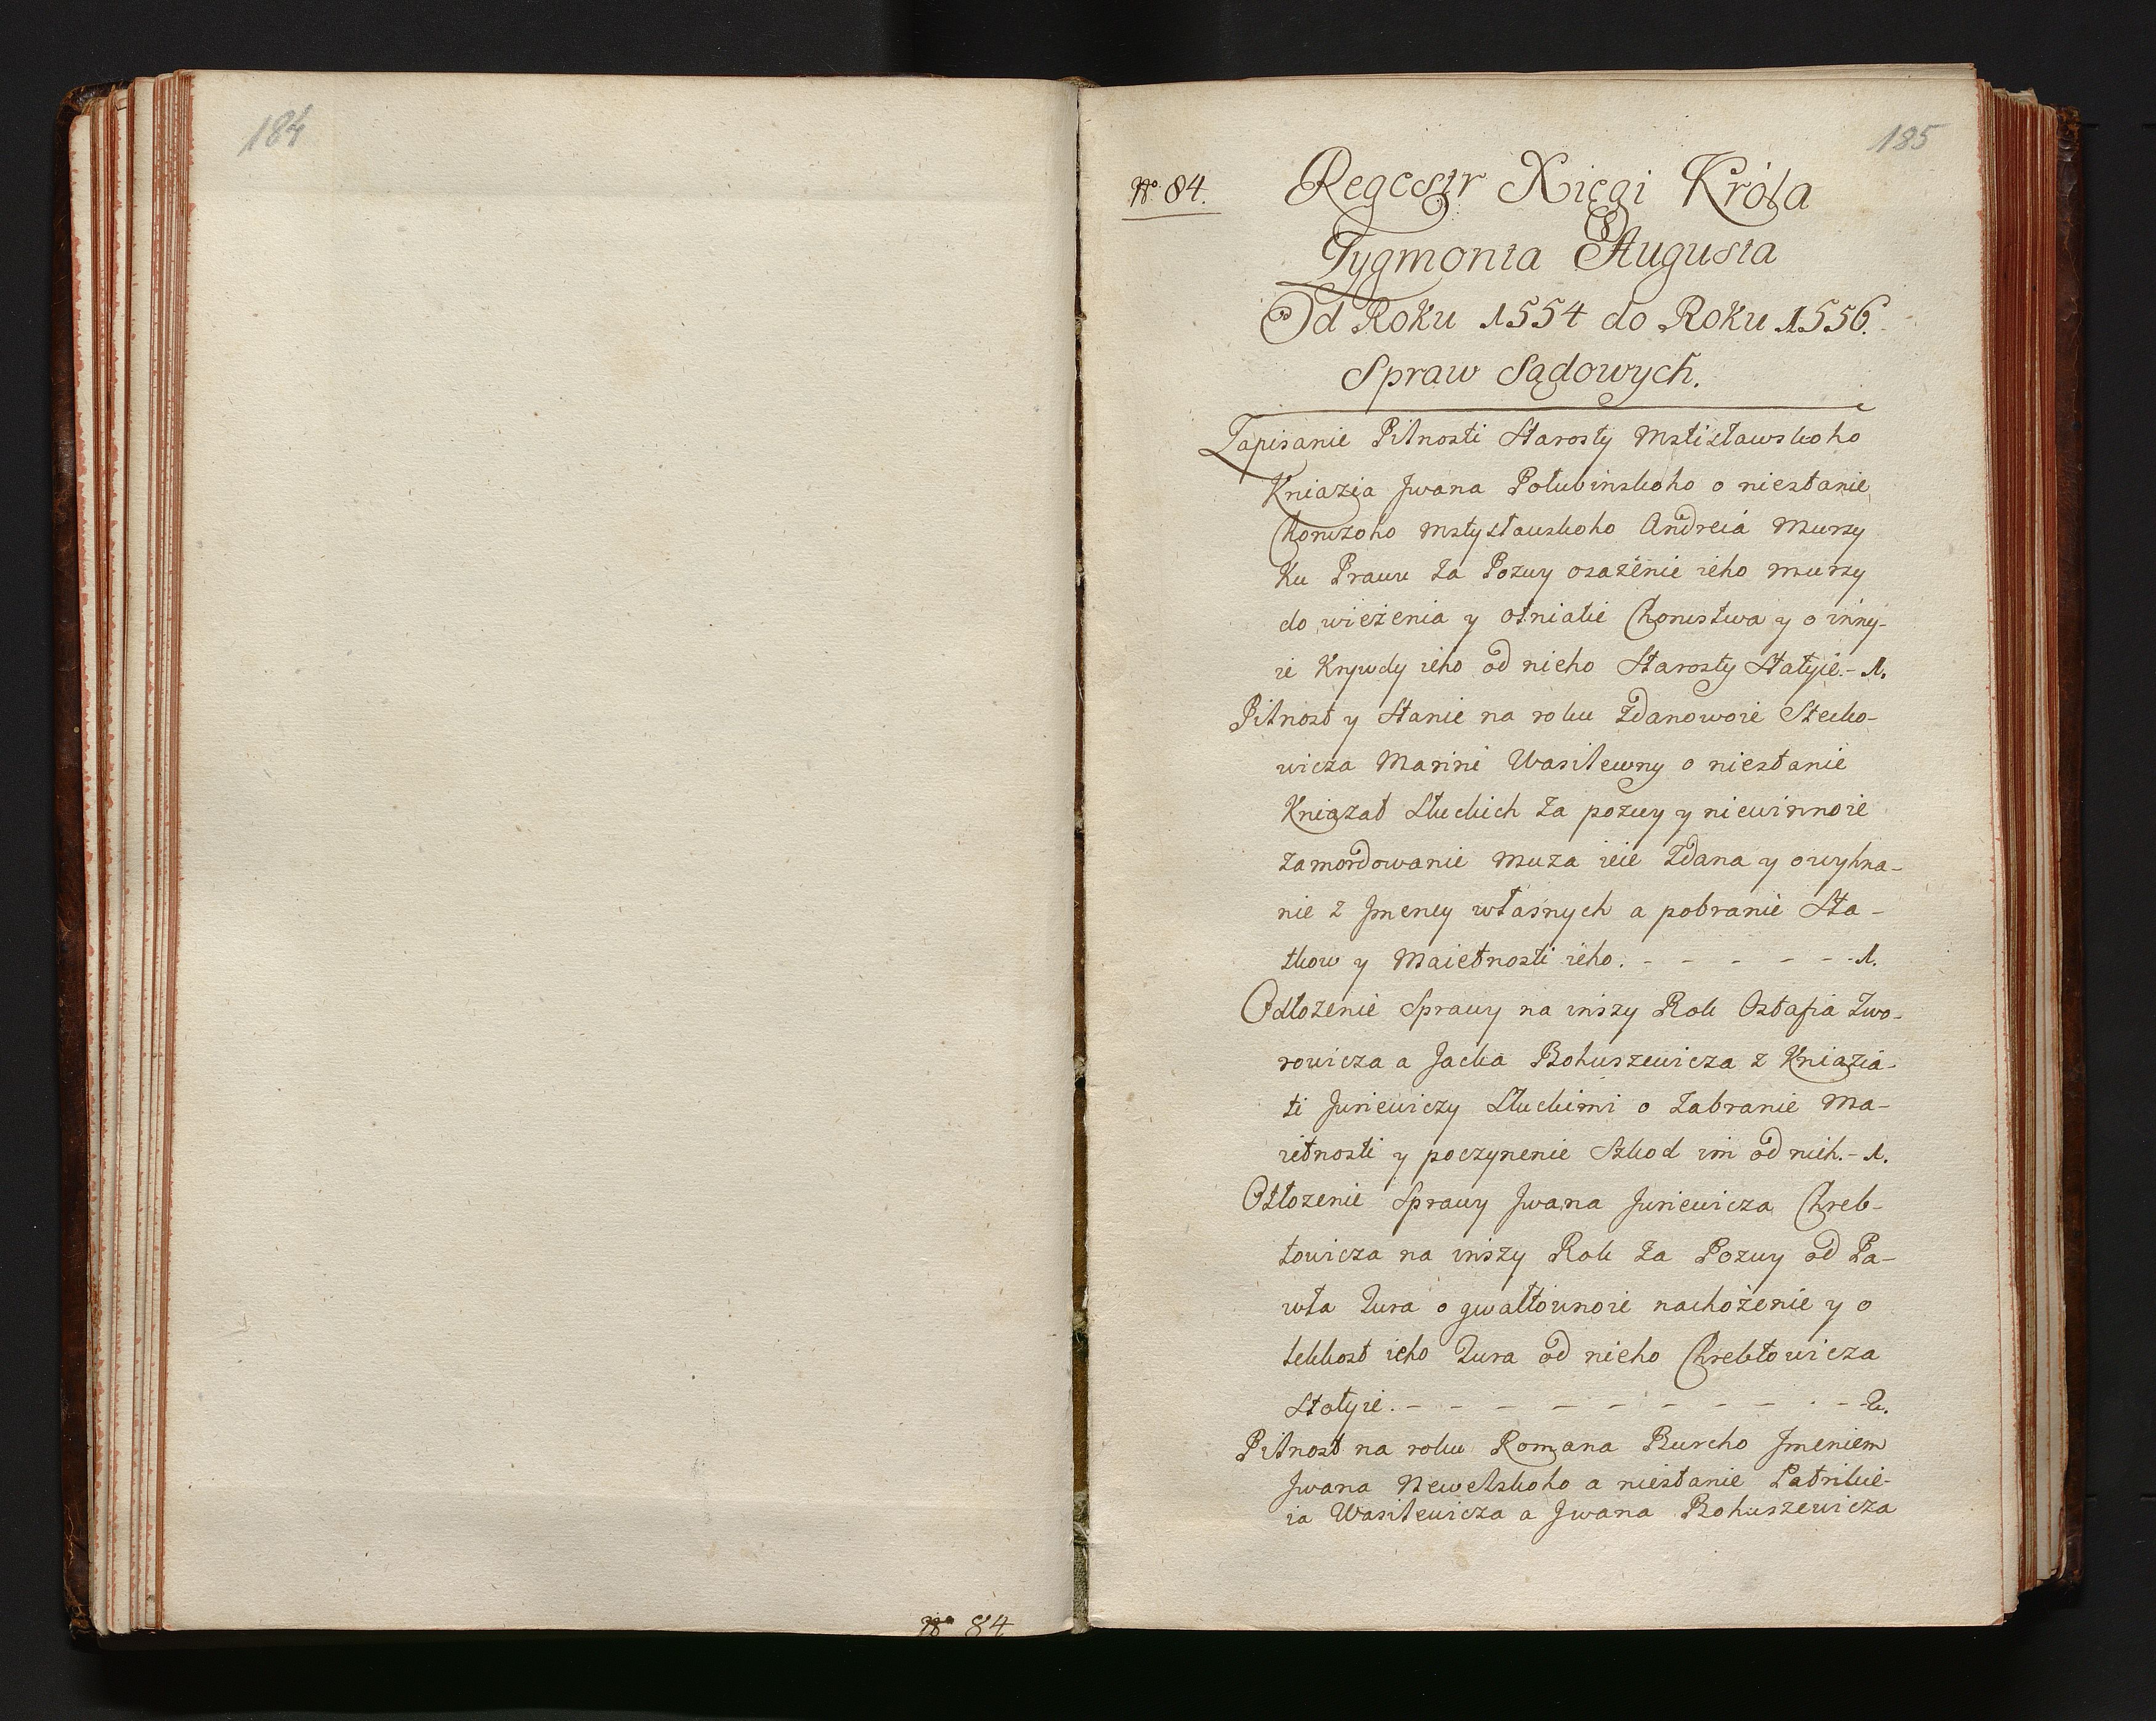 184
No 84
185
No. 84.
Regestr Xięgi Króla
Zygmonta Augusta
Od Roku 1554 do Roku 1556.
Spraw Sądowych.
Zapisanie Pilnosti Starosty Mstisławskoho
Kniazia Jwana Połubinskoho o niestanie
Chorużoho Mstysławskoho Andreia Murzy
Ku Prawu za Pozwy osażenie ieho Murzy
do wieżenia y otniatie Chorustwa y o inny-
ie Krywdy ieho od nieho Starosty Stałyie. - 1.
Pilnost y Stanie na roku Zdanowoie Stecko-
wicza Marini Wasilewny o niestanie
Kniązat Słuckich za pozwy y niewinnoie
zamordowanie muza ieie Zdana y o wyhna-
nie z Jmeney własnych a pobranie Sta-
tkow y Maietnosti ieho. - - - - - - 1.
Odłozenie Sprawy na inszy Rok Ostafia Zwo-
rowicza a Jacka Bohuszewicza z Kniazia-
ti Juriewiczy Słuckimi o zabranie Ma-
ietnosti y poczynenie Szkod im od nich. - 1.
Otłozenie Sprawy Jwana Juriewicza Chreb-
towicza na inszy Rok za Pozwy od Pa-
wła Zura o gwałtownoie nachożenie y o
lekkost ieho Zura od nieho Chrebtowicza
Stałyie. - - - - - - - - - - 2.
Pilnost na roku Romana Burcho Jmeniem
Jwana Newelskoho a niestanie Patrikie-
ia Wasilewicza a Jwana Bohuszewicza